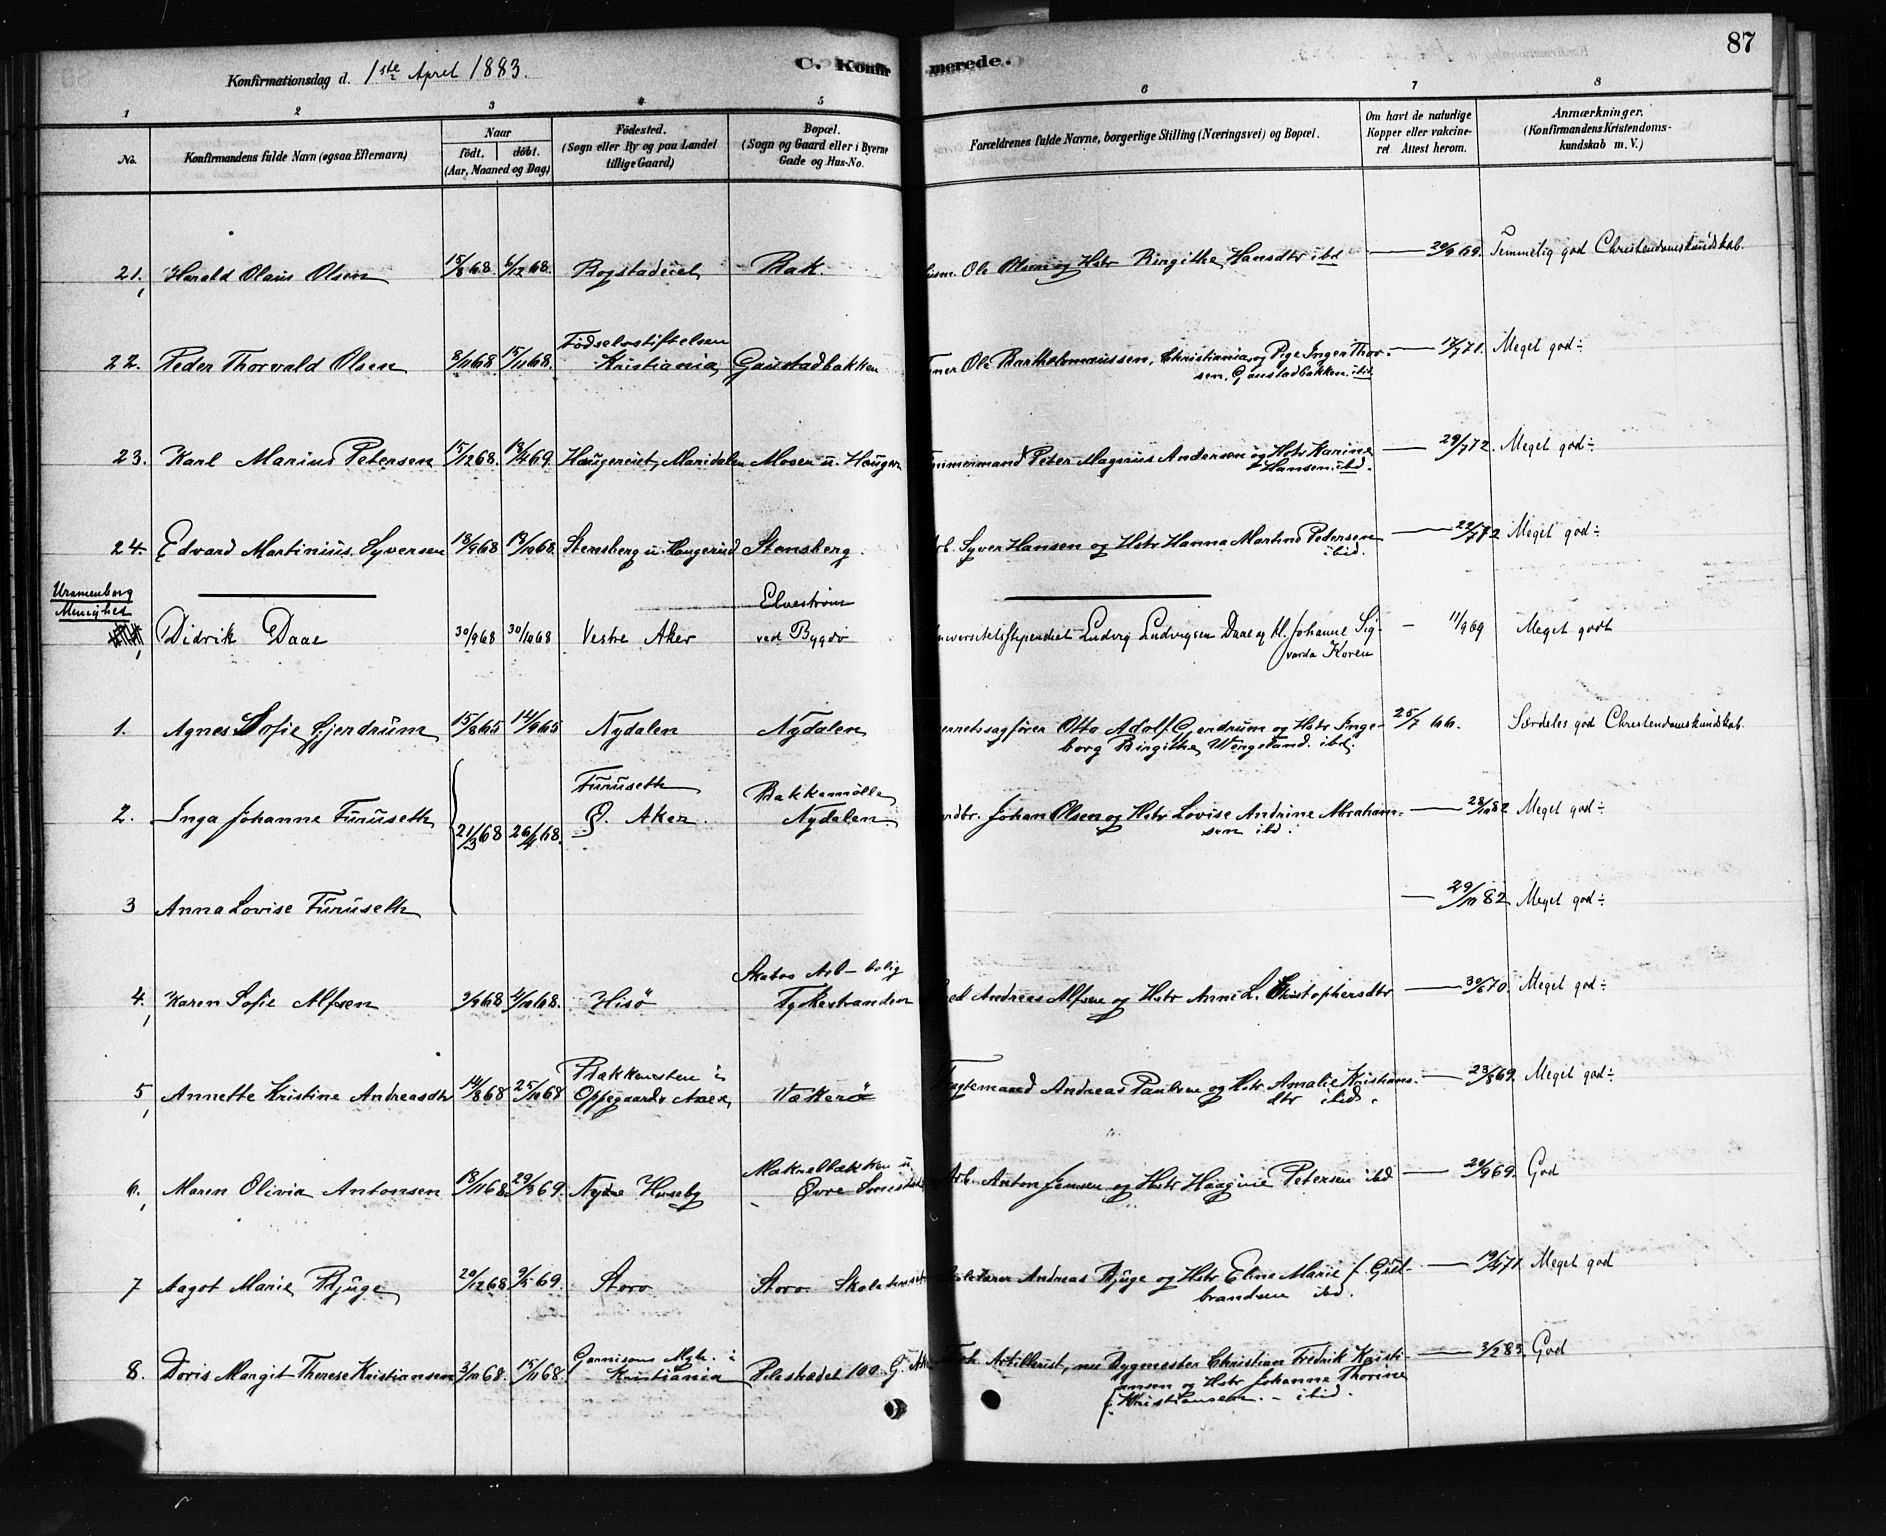 87
Konfirmationsdag d. 1ste April 1883.
C. Konfirmerede.
1 2 3 4 5 6 7 8
No.
Konfirmandens fulde Navn (ogsaa Efternavn)
Naar
født. døbt.
(Aar, Maaned og Dag)
Födested.
(Sogn eller By og paa Landet
tillige Gaard)
Bopæl.
(Sogn og Gaard eller i Byerne
Gade og Hus-No.
Forældrenes fulde Navne, borgerlige Stilling (Næringsvei) og Bopæl.
Om havt de naturlige
Kopper eller vakcine-
ret Attest herom.
Anmærkninger.
(Konfirmandens Kristendoms-
kundskab m. V.)
21, Harald Olaus Olsen 15/8 68 6/12 68. Bak Ole Olsen og Hstr Birgithe Hansdtr ibd — 20/9 69. Temmelig god Christendomskundskab.
Fødselsstiftelsen
22. Peder Thorvald Olsen 8/11 68 15/11 68. Kristiania Gaustadbakken Ole Bartholomæussen, Christiania, og Pige Inger Thor-
sen, Gaustadbakken ibid — 71. Meget god÷
23. Karl Marius Petersen 15/12 68. 18/4 69. Maridalen Mosen u. Haugen Peter Magnus Andersen og Hstr Karine
Hansen ibd. — 29/7 72. Meget god÷
24. Edvard Martinius Syversen 18/9 68 68. Stensberg u. Haugerud Stensberg. Arb. Syver Hansen og Hstr Hanna Martine Pedersen
ibid. — 72 Meget god÷
Uranienborg
Menighed
Elvestrøm
Didrik Daae 30/9 68 30/10 68 Vestre Aker ved Bygdø Universitetsstipendiat Ludvig Ludvigsen Daae og H. Johanne Sig-
varda Koren — 11/9 69 Meget godt
1. Agnes Sofie Gjerdrum 15/8 65 14/9 65 Nydalen Nydalen Otto Adolf Gjerdrum og Hstr Inge-
borg Birgithe Wingestand. ibd. 25/7 66. Særdeles god Christendomskundskab.
Furuseth Bakkemølle
2. Inga Johanne Furuseth 21/3 68 26/4 68. Ø. Aker. Nydalen. Johan Olsen og Hstr Lovise Andrine Abraham-
sen ibd. — 28/10 82 Meget god÷
3 Anna Lovise Furuseth — 82 Meget god÷
Skabos Arb-bolig
4, Karen Sofie Alfsen 68 68. Hisö Tyskestranden Andreas Alfsen og Hstr Anne L. Christophersdtr — 30/6 70. Meget god÷
Bakkensten i
5, Annette Kristine Andreasdtr 14/8 68 25/10 68 Oppegaards Anex Vækerö Andreas Paulsen og Hstr Amalie Kristians-
dtr ibid. — 23/8 69. Meget god÷
6, Maren Olivia Antonsen 18/11 68 29/3 69. Nydre Huseby Makrelbækken u.
Øvre Smestad Arb. Anton Jensen og Hstr Haagine Petersen ibd — 20/9 69. God
7 Aagot Marie Bjuge 20/12 68 9/5 69. Storo Storo Andreas Bjuge og Hstr Eline Marie f. Gul-
brandsen ibd. — 71 Meget god
Garnisons Mgh. i
8. Doris Margit Therese Kristiansen 3/10 68. 15/11 68. Kristiania Pilestrædet 100. Artillerist, nu Bygmester Christian Fredrik Kristi-
ansen og Hstr Johanne Thorine
f. Kristiansen. – ibid. — 3/2 83. God